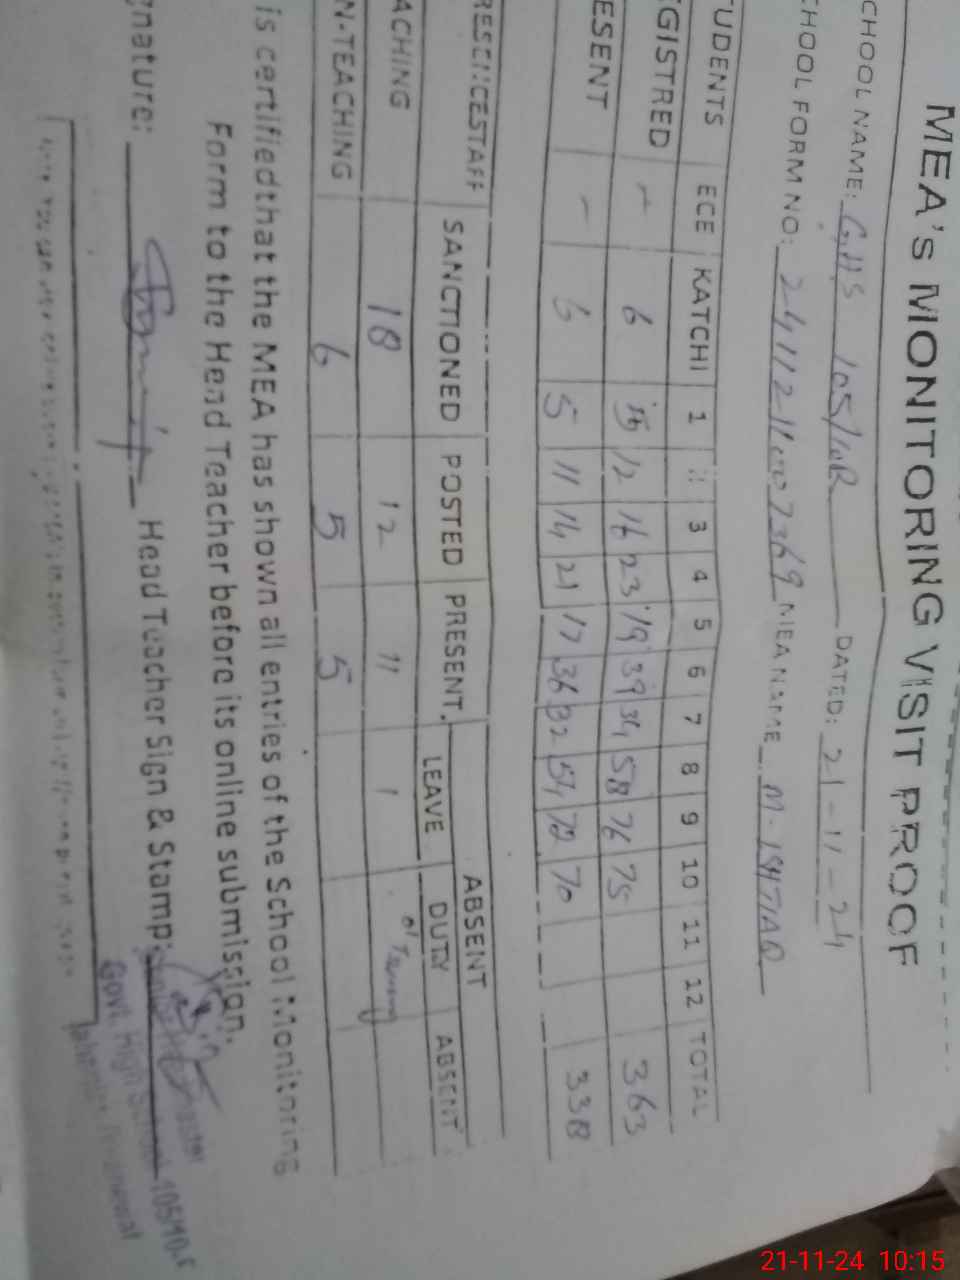 MEA's MIONITORING VISIT PROOF
CHOOL NAME: GHS 105/10R DATED: 21-11-24
CHOOL FORM NO: MEA NAME M. ISHTIAQ
TUDENTS ECE KATCHI 1 3 4 5 6 7 8 9 10 11 12 TOTAL
GISTRED - 6 12 16 23 19 39 34 58 76 75 363
ESENT - 6 5 11 14 21 17 36 32 54 72 70 338
RESENCESTAFF SANCTIONED POSTED PRESENT. ABSENT
LEAVE DUTY ABSENT
ACHING 18 12 11 1
N-TEACHING 6 5 5
is certifiedthat the MEA has shown all entries of the School Monitoring
Form to the Head Teacher before its online submission.
gnature: Head Teacher Sign & Stamp:
Govt. High School 105/10-R
21-11-24 10:15